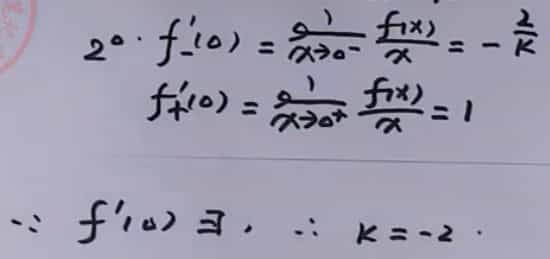 2°. f'₋(0) = lim x→0⁻ f(x)/x = -2/K
f'₊(0) = lim x→0⁺ f(x)/x = 1
∵ f'(0) ∃, ∴ K = -2.